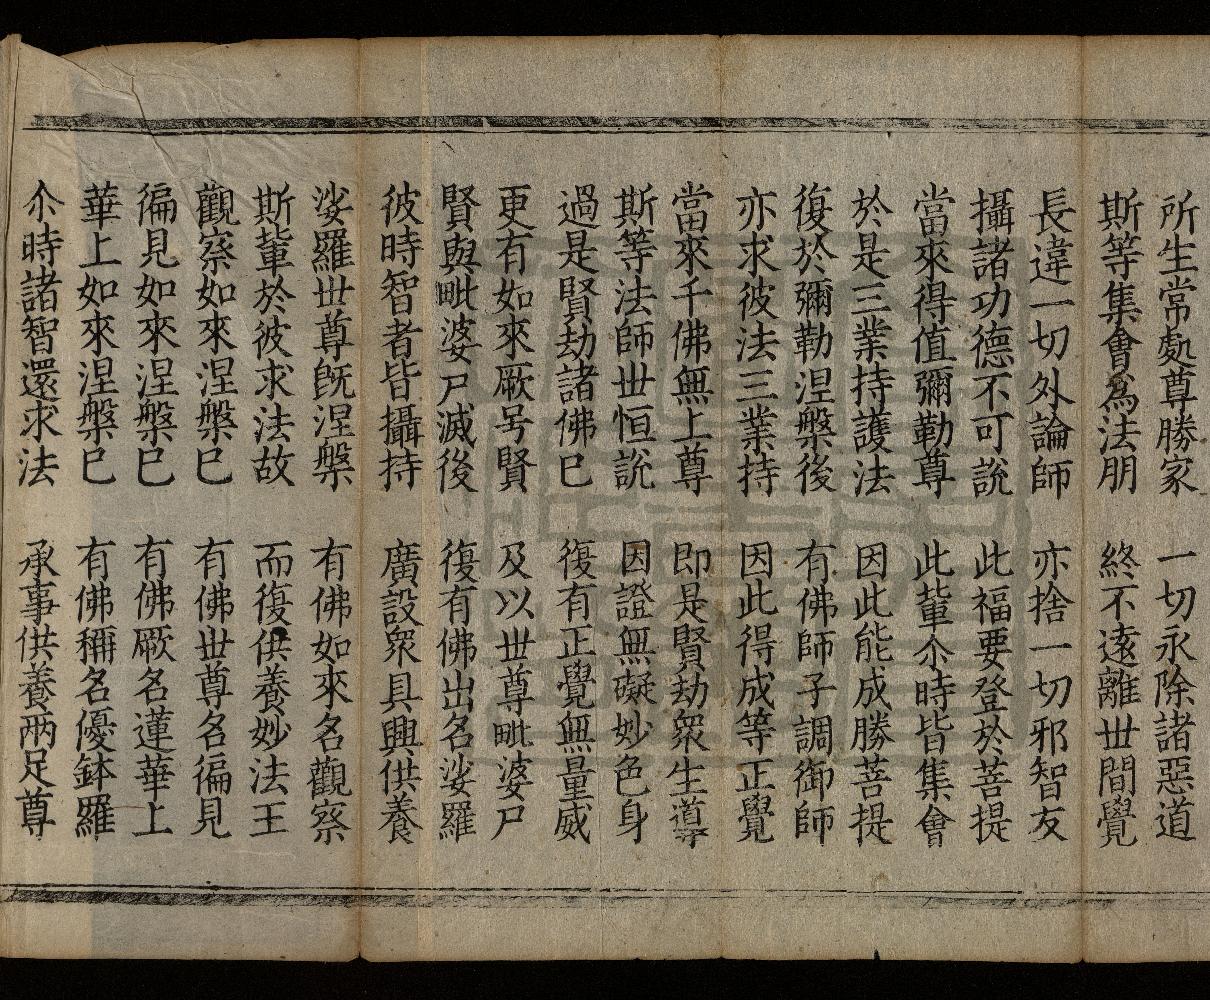 所生常處尊勝家　一切永除諸惡道
斯等集會爲法朋　終不遠離世間覺
長違一切外論師　亦捨一切邪智友
攝諸功德不可說　此福要登於菩提
當來得值彌勒尊　此軰尒時皆集會
於是三業持護法　因此能成勝菩提
復於彌勒涅槃後　有佛師子調御師
亦求彼法三業持　因此得成等正覺
當來千佛無上尊　即是賢劫衆生導
斯等法師世恒說　因證無礙妙色身
過是賢劫諸佛已　復有正覺無量威
更有如來厥号賢　及以世尊毗婆尸
賢與毗婆尸滅後　復有佛出名娑羅
彼時智者皆攝持　廣設衆具興供養
娑羅世尊既涅槃　有佛如來名觀察
斯軰於彼求法故　而復供養妙法王
觀察如來涅槃已　有佛世尊名徧見
徧見如來涅槃已　有佛厥名蓮華上
華上如來涅槃已　有佛稱名優鉢羅
尒時諸智還求法　承事供養兩足尊